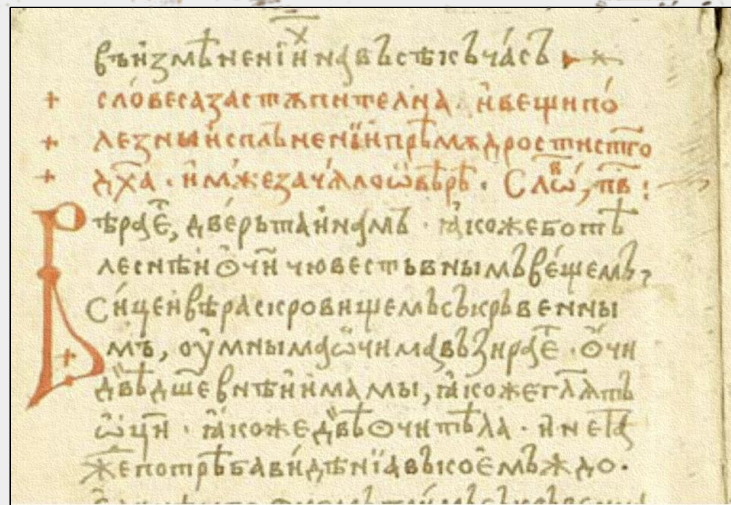 въ измѣненїи на въсѣкъ чáсъ
+ словеса застѫпителна · и вещи пó
+ лезны и исплънени и прѣмѫдрости ст҃го
+ дх҃а · имже зачѧло ѡ вѣрѣ · Слѡ҃, пв҃ :
Вѣра є҃, двéрь таинамъ · ꙗкоже бо тѣ
леснѣи ѻчи чювестьвнымъ вéщемъ,
Сице и вѣра скровищемъ съкръвенны
мъ, оумныма ѡчима възирае҃ · Ѻчи
двѣ дш҃евнѣи имамы, ꙗкоже гл҃ѧтъ
ѡ҃ци · ꙗкоже двѣ ѻчи тѣла · и не таꙗ
же потрѣба видѣнїа въ коемъждо.